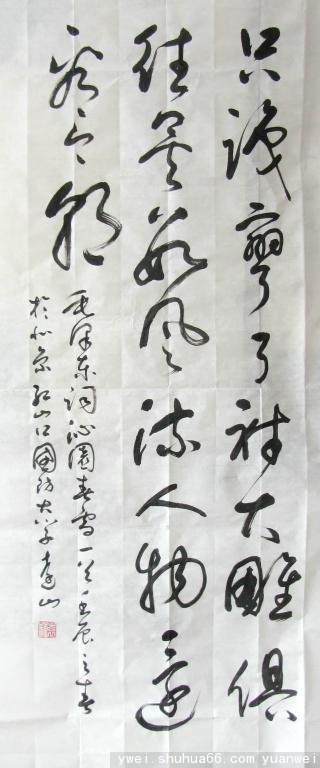 只識彎弓射大雕俱
往矣數風流人物還
看今朝
毛泽东词沁園春雪一首壬辰之春
於北京红山口國防大学山
ywei.shuhua66.com yuanwei